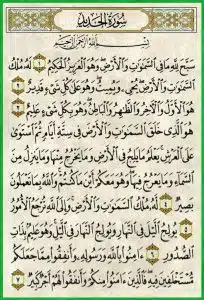 سورة الحديد
بسم الله الرحمن الرحيم
سَبَّحَ لِلَّهِ مَا فِي السَّمَوَاتِ وَالْأَرْضِ وَهُوَ الْعَزِيزُ الْحَكِيمُ ١ لَهُ مُلْكُ
السَّمَوَاتِ وَالْأَرْضِ يُحْيِي وَيُمِيتُ وَهُوَ عَلَى كُلِّ شَيْءٍ قَدِيرٌ ٢
هُوَ الْأَوَّلُ وَالْآخِرُ وَالظَّاهِرُ وَالْبَاطِنُ وَهُوَ بِكُلِّ شَيْءٍ عَلِيمٌ ٣
هُوَ الَّذِي خَلَقَ السَّمَوَاتِ وَالْأَرْضَ فِي سِتَّةِ أَيَّامٍ ثُمَّ اسْتَوَى
عَلَى الْعَرْشِ يَعْلَمُ مَا يَلِجُ فِي الْأَرْضِ وَمَا يَخْرُجُ مِنْهَا وَمَا يَنزِلُ مِنَ
السَّمَاءِ وَمَا يَعْرُجُ فِيهَا وَهُوَ مَعَكُمْ أَيْنَ مَا كُنتُمْ وَاللَّهُ بِمَا تَعْمَلُونَ
بَصِيرٌ ٤ لَهُ مُلْكُ السَّمَوَاتِ وَالْأَرْضِ وَإِلَى اللَّهِ تُرْجَعُ الْأُمُورُ
٥ يُولِجُ اللَّيْلَ فِي النَّهَارِ وَيُولِجُ النَّهَارَ فِي اللَّيْلِ وَهُوَ عَلِيمٌ بِذَاتِ
الصُّدُورِ ٦ ءَامِنُوا بِاللَّهِ وَرَسُولِهِ وَأَنفِقُوا مِمَّا جَعَلَكُم
مُّسْتَخْلَفِينَ فِيهِ فَالَّذِينَ ءَامَنُوا مِنكُمْ وَأَنفَقُوا لَهُمْ أَجْرٌ كَبِيرٌ ٧